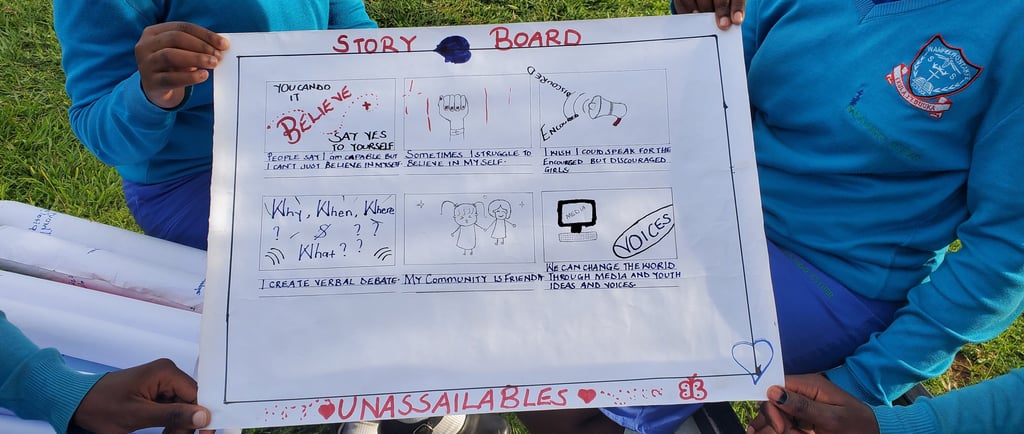 STORY BOARD
YOU CAN DO
IT
BELIEVE
SAY YES
TO YOURSELF
PEOPLE SAY I am CAPABLE BUT
I CAN'T JUST BELIEVE IN MYSELF.
SOMETIMES I STRUGGLE TO
BELIEVE IN MYSELF.
DISCOURED
ENCOURED
I WISH I COULD SPEAK FOR THE
ENCOURGED BUT DISCOURAGED
GIRLS.
Why, When, Where
? ? ?
What??
I CREATE VERBAL DEBATE.
MY COMMUNITY IS FRIENDLY
MEDIA
VOICES
WE CAN CHANGE THE WORLD
THROUGH MEDIA AND YOUTH
IDEAS AND VOICES.
UNASSAILABLES